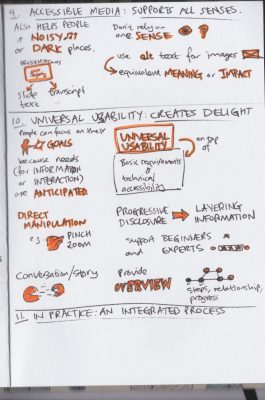 9. ACCESSIBLE MEDIA: SUPPORTS ALL SENSES.
ALSO HELPS PEOPLE
in NOISY
or DARK places.
Don't rely on
one SENSE
PRESENTATIONS
slide transcript
text
use alt text for images
equivalent MEANING or IMPACT
10. UNIVERSAL USABILITY: CREATES DELIGHT
People can focus on their
GOALS
because needs
(for INFORMATION
or INTERACTION)
are ANTICIPATED
UNIVERSAL
USABILITY
on top
of
Basic requirements
&
technical
accessibility
DIRECT
MANIPULATION
e.g PINCH
ZOOM
PROGRESSIVE
DISCLOSURE
LAYERING
INFORMATION
support BEGINNERS
and EXPERTS
Conversation/story
Provide
OVERVIEW
steps, relationship,
progress
11. IN PRACTICE: AN INTEGRATED PROCESS